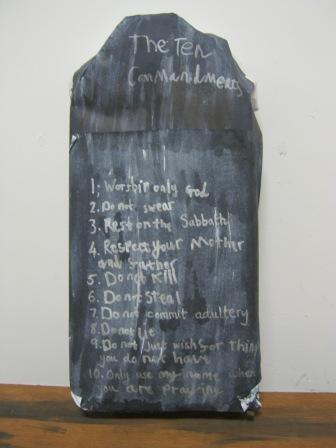 The Ten
Commandments
1, Worship only God
2. Do not swear
3. Rest on the Sabbath
4. Respect your Mother
and Father
5. Do not Kill
6. Do not Steal
7. Do not commit adultery
8. Do not lie
9. Do not Just wish for thing
you do not have
10. Only use my name when
you are praying